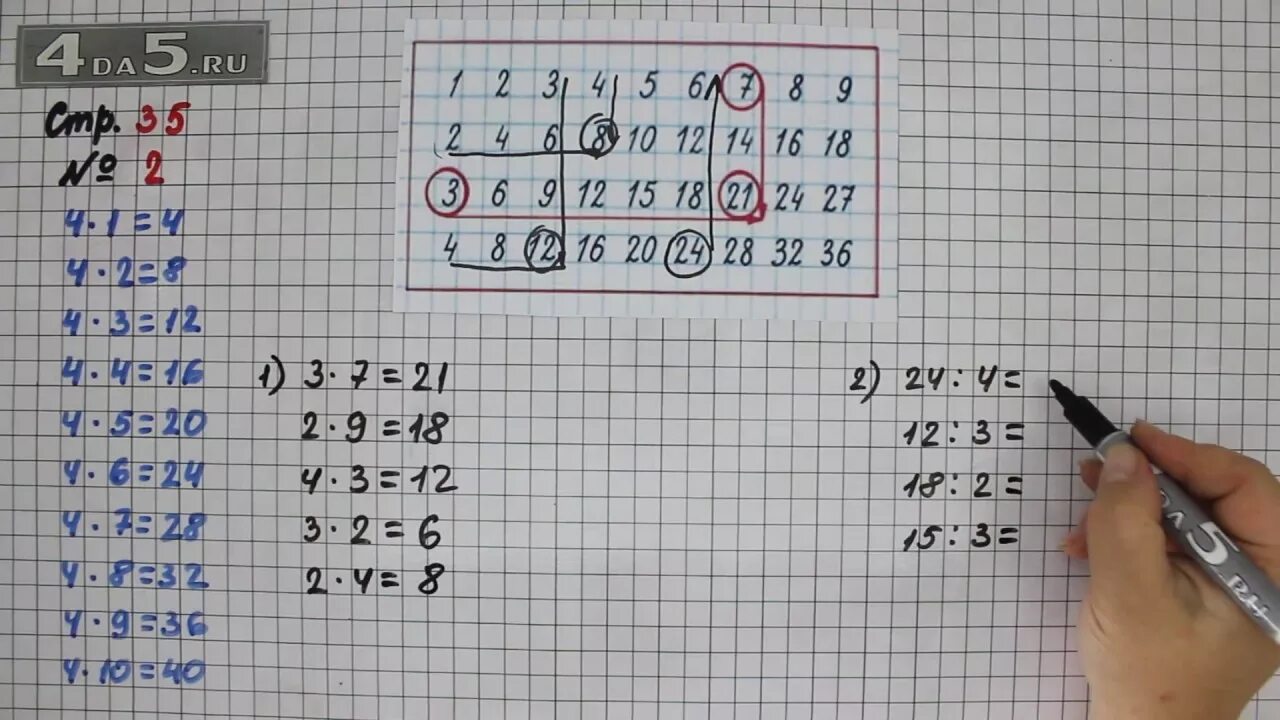 4DA5.RU
Стр. 35
№ 2
4·1=4
4·2=8
4·3=12
4·4=16
4·5=20
4·6=24
4·7=28
4·8=32
4·9=36
4·10=40
1 2 3 4 5 6 7 8 9
2 4 6 8 10 12 14 16 18
3 6 9 12 15 18 21 24 27
4 8 12 16 20 24 28 32 36
1) 3·7=21
2·9=18
4·3=12
3·2=6
2·4=8
2) 24:4=
12:3=
18:2=
15:3=